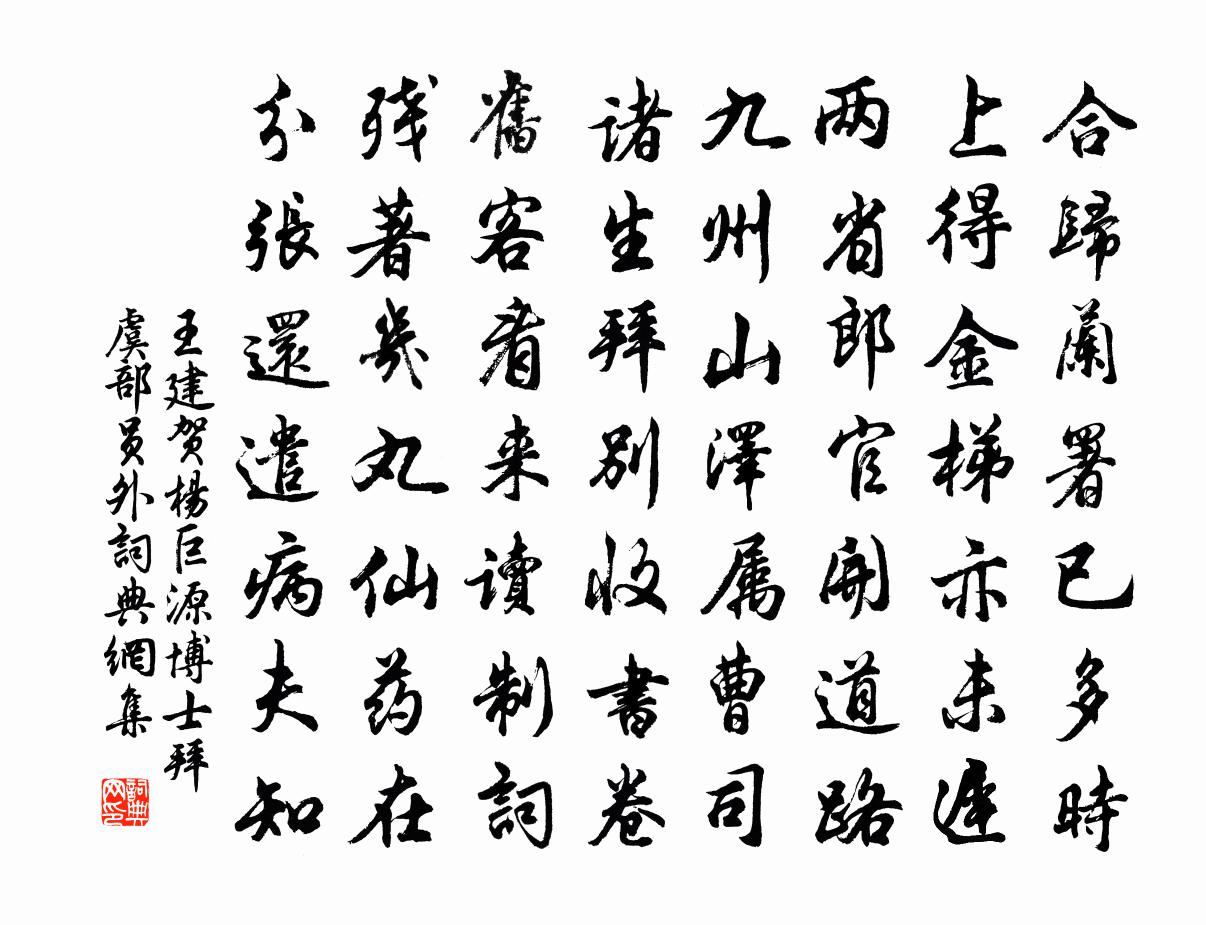 合歸蘭署已多時
上得金梯亦未遲
两省郎官開道路
九州山澤属曹司
諸生拜別收書卷
舊客看来讀制詞
残著幾丸仙药在
分張還遣病夫知
王建贺楊巨源博士拜
虞部员外詞典網集
詞典网印